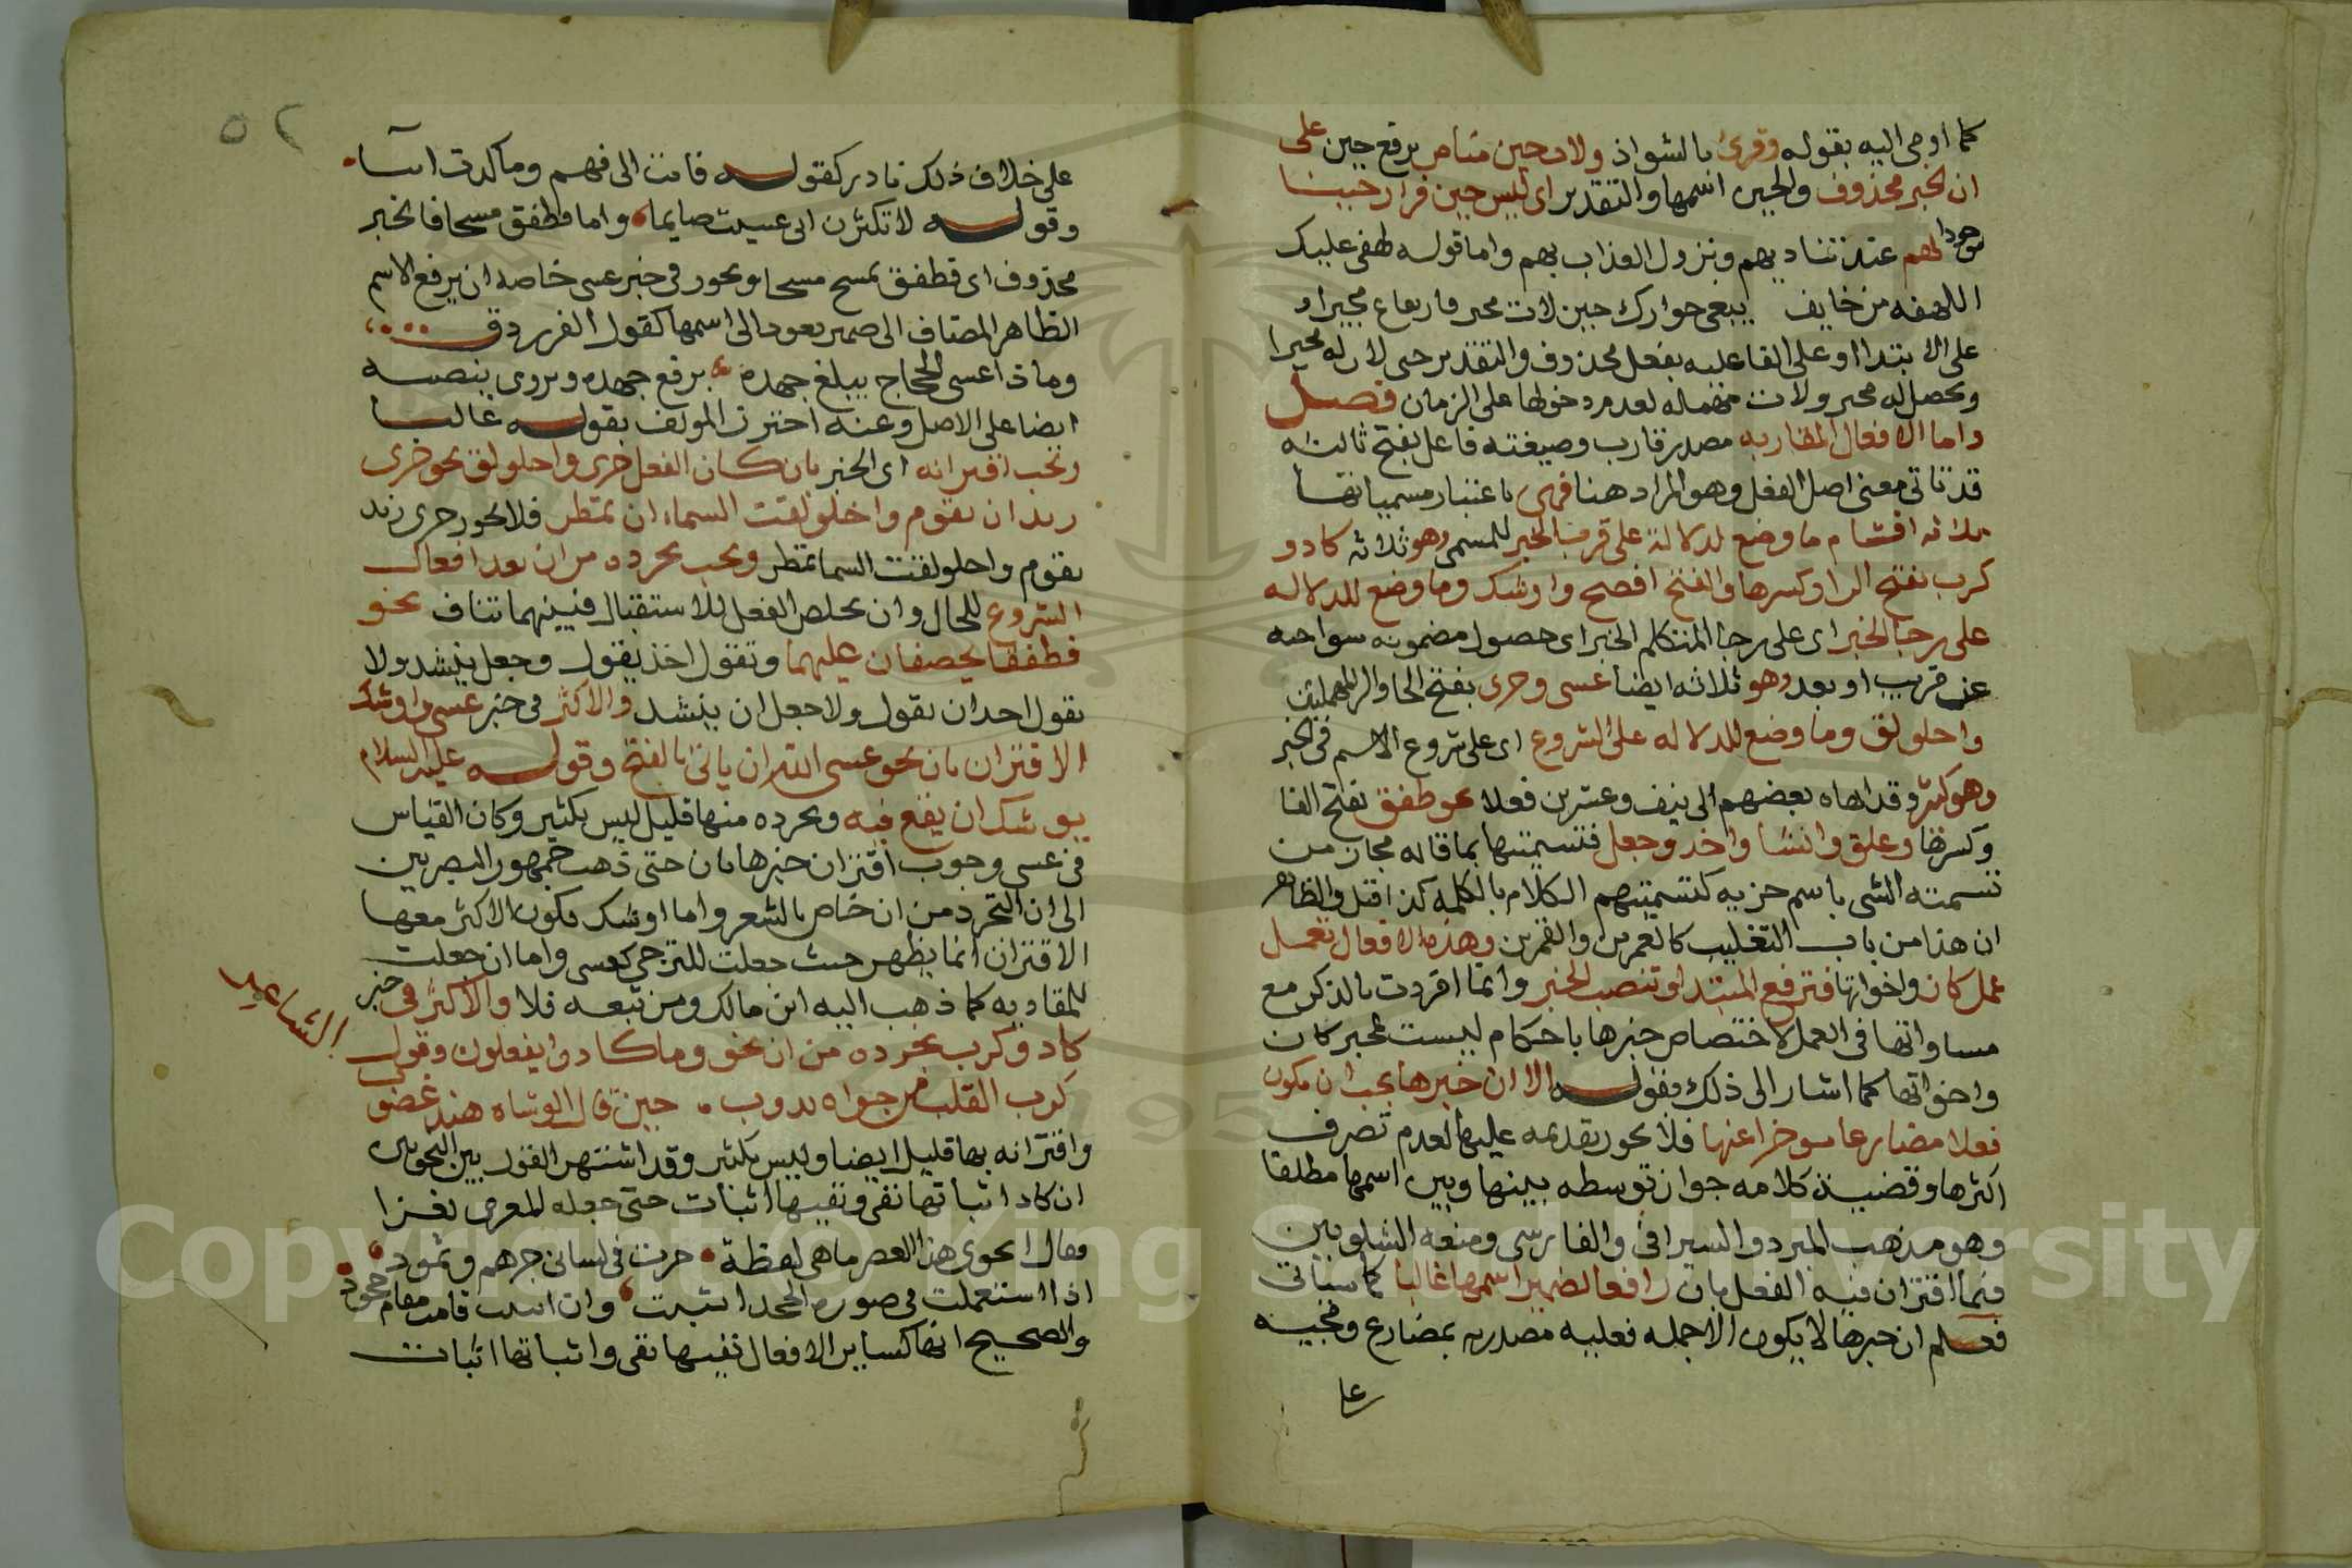 كما اومى اليه بقوله وقرئ بالشواذ ولات حين مناص برفع حين على
ان الخبر محذوف والحين اسمها والتقدير اى ليس حين فرار حينئذ
موجودا لهم عند تناديهم ونزول العذاب بهم واما قوله لهفى عليك
اللهفه من خايف يبغى جوارك حين لات مجير فارتفاع مجير او
على الابتدا او على الفاعليه بفعل محذوف والتقدير حين لات له مجيرا
ويحصل له مجير ولات مهمله لعدم دخولها على الزمان فصل
واما الافعال المقاربه مصدر قارب وصيغته فاعل بفتح ثالثه
قد تاتى معنى اصل الفعل وهو المراد هنا فهى باعتبار مسمياتها
ثلاثه اقسام ما وضع لدلالة على قرب الخبر للمسمى وهو ثلاثه كاد و
كرب بفتح الرا وكسرها والفتح افصح واوشك وما وضع للدلاله
على رجا الخبر اى على رجا المتكلم الخبر اى حصول مضمونه سوا حبه
عن قريب او بعد وهو ثلاثه ايضا عسى وحرى بفتح الحا والرا المهملتين
واخلولق وما وضع للدلاله على الشروع اى على شروع الاسم فى الخبر
وهو كثير وقد انهاه بعضهم الى نيف وعشرين فعلا نحو طفق بفتح الفا
وكسرها وعلق وانشا واخذ وجعل فتسميتها بما قاله مجاز من
تسمية الشى باسم جزيه كتسميتهم الكلام بالكلمه كذا قيل والظاهر
ان هذا من باب التغليب كالعمرين والقمرين وهذه الافعال تعمل
عمل كان واخواتها فترفع المبتدا وتنصب الخبر وانما افردت بالذكر مع
مساواتها فى العمل لاختصاص خبرها باحكام ليست لخبر كان
واخواتها كما اشار الى ذلك بقوله الا ان خبرها يجب ان يكون
فعلا مضارعا موخرا عنها فلا يجوز تقديمه عليها لعدم تصرف
اكثرها وقضية كلامه جواز توسطه بينها وبين اسمها مطلقا
وهو مذهب المبرد والسيرافى والفارسى ومنعه الشلوبين
فيما اقترن فيه الفعل بان رافعا لضمير اسمها غالبا كما سياتى
فعلم ان خبرها لا يكون الا جمله فعليه مصدره بمضارع ومجيه
على خلاف ذلك نادر كقوله فابت الى فهم وما كدت ايبا
وقوله لا تكثرن انى عسيت صايما واما فطفق مسحا فالخبر
محذوف اى فطفق يمسح مسحا ويجوز فى خبر عسى خاصه ان يرفع الاسم
الظاهر المضاف الى ضمير يعود الى اسمها كقول الفرزدق
وماذا عسى الحجاج يبلغ جهده برفع جهده ويروى بنصبه
ايضا على الاصل وعنه احترز المولف بقوله غالبا
ويجب اقترانه اى الخبر بان كان الفعل حرى واخلولق نحو حرى
زيد ان يقوم واخلولقت السماء ان تمطر فلا يجوز حرى زيد
يقوم واخلولقت السما تمطر ويجب تجرده من ان بعد افعال
الشروع للحال وان يخلص الفعل للاستقبال فبينهما تناف نحو
فطفقا يخصفان عليهما وتقول اخذ يقول وجعل ينشد ولا
تقول اخذ ان يقول ولا جعل ان ينشد والاكثر فى خبر عسى واوشك
الاقتران بان نحو عسى الله ان ياتى بالفتح وقوله عليه السلام
يوشك ان يقع فيه وتجرده منها قليل ليس بكثير وكان القياس
فى عسى وجوب اقتران خبرها بان حتى ذهب جمهور البصريين
الى ان التجرد من ان خاص بالشعر واما اوشك فكون الاكثر معها
الاقتران انما يظهر حيث جعلت للترجى كعسى واما ان جعلت
للمقاربه كما ذهب اليه ابن مالك ومن تبعه فلا والاكثر فى خبر
كاد وكرب تجرده من ان نحو وما كادوا يفعلون وقول
الشاعر
كرب القلب من جواه يذوب حين قال الوشاه هند غضوب
واقترانه بها قليل ايضا وليس بكثير وقد اشتهر القول بين النحويين
ان كاد اثباتها نفى ونفيها اثبات حتى جعله المعرى لغزا
فقال انحوى هذا العصر ما هى لفظة جرت فى لسانى جرهم وثمود
اذا استعملت فى صوره الجحد اثبتت وان اثبتت قامت مقام جحود
والصحيح انها كساير الافعال نفيها نفى واثباتها اثبات